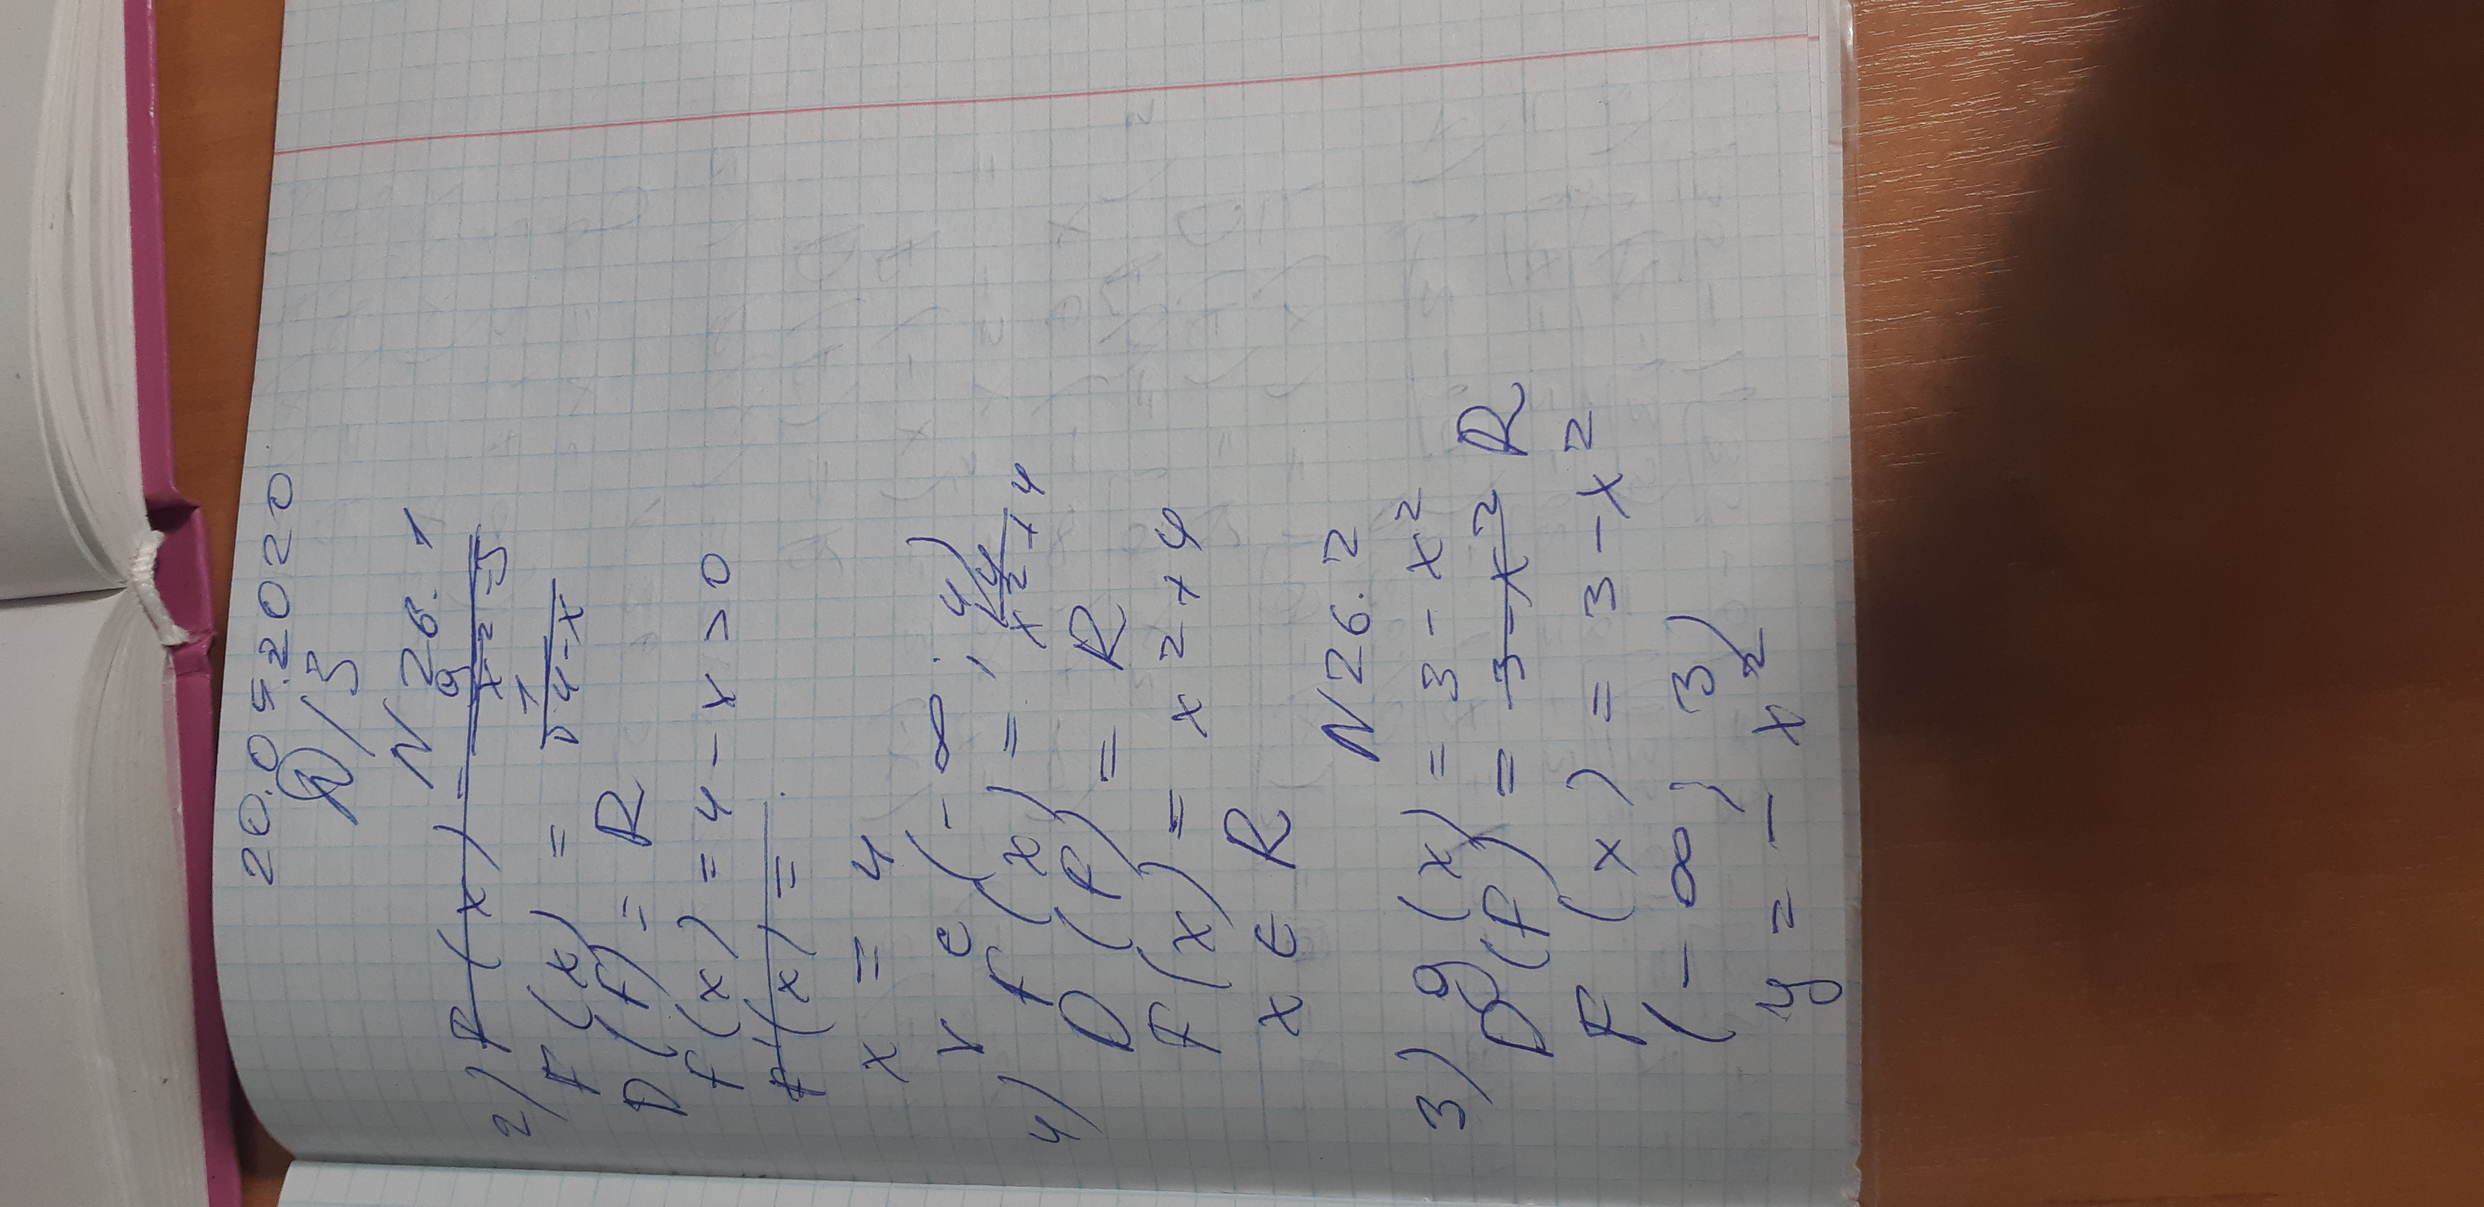 20.05.2020
Д/З
N 26.1
2) f(x) = 9/x²-5
f(x) = 1/√4-x
D(f) = R
f(x) = 4-x>0
f(x) =
x = 4
x є (-∞; 4)
4) f(x) = 4/x²+4
D(f) = R
f(x) = x2+4
x є R
N26.2
3) g(x) = 3-x²
D(f) = 3-x² R
F(x) = 3-x²
(-∞; 3)
y = -x²